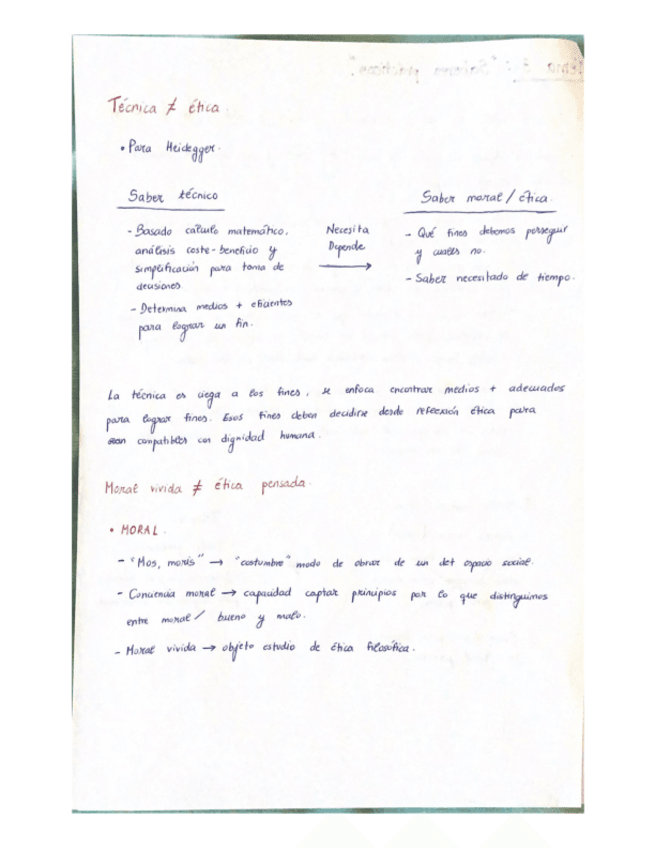 Tema 3: "Saberes prácticos".
Técnica ≠ ética.
• Para Heidegger.
Saber técnico
- Basado cálculo matemático,
análisis coste-beneficio y
simplificación para toma de
decisiones.
- Determina medios + eficientes
para lograr un fin.
Necesita
Depende
→
Saber moral / ética.
- Qué fines debemos perseguir
y cuáles no.
- Saber necesitado de tiempo.
La técnica es ciega a los fines, se enfoca encontrar medios + adecuados
para lograr fines. Esos fines deben decidirse desde reflexión ética para
sean compatibles con dignidad humana.
Moral vivida ≠ ética pensada.
• MORAL.
- "Mos, moris" → "costumbre" modo de obrar de un det espacio social.
- Conciencia moral → capacidad captar principios por lo que distinguimos
entre moral / bueno y malo.
- Moral vivida → objeto estudio de ética filosófica.